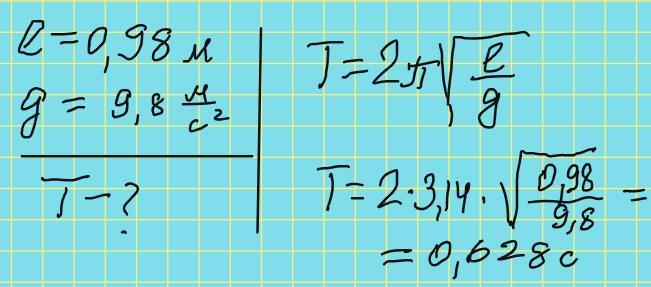 l = 0,98 м
g = 9,8 м/с²
T - ?
T = 2π√(l/g)
T = 2·3,14·√(0,98/9,8) =
= 0,628 с